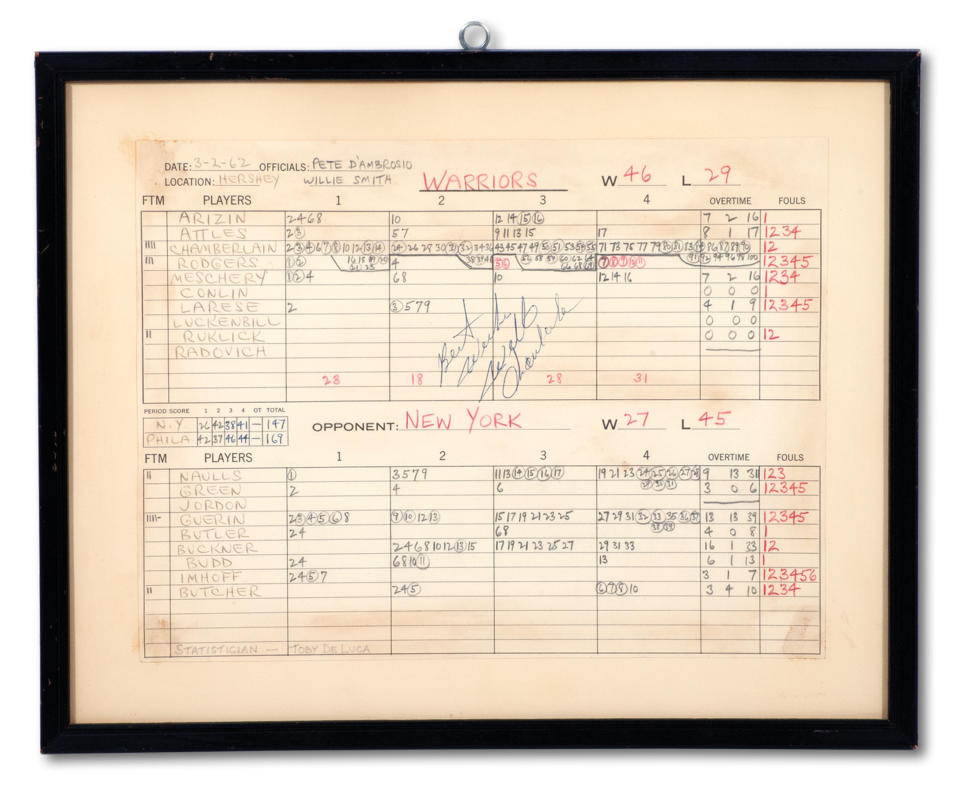 DATE: 3-2-62 OFFICIALS: PETE D'AMBROSIO
LOCATION: HERSHEY WILLIE SMITH WARRIORS W 46 L 29
FTM PLAYERS 1 2 3 4 OVERTIME FOULS
ARIZIN 2 4 6 8 10 12 14 15 16 7 2 16 1
ATTLES 2 3 5 7 9 11 13 15 17 8 1 17 1 2 3 4
CHAMBERLAIN 1 2
RODGERS 1 2 4 1 2 3 4 5
MESCHERY 1 2 4 6 8 10 12 14 16 7 2 16 1 2 3 4
CONLIN 0 0 0
LARESE 2 3 5 7 9 4 1 9 1 2 3 4 5
LUCKENBILL 0 0 0
RUKLICK 0 0 0 1 2
RADOVICH
Best Wishes Wilt Chamberlain
28 18 28 31
PERIOD SCORE 1 2 3 4 OT TOTAL
N.Y. 26 42 38 41 — 147
PHILA 42 37 46 44 — 169
OPPONENT: NEW YORK W 27 L 45
FTM PLAYERS 1 2 3 4 OVERTIME FOULS
NAULLS 1 3 5 7 9 11 13 14 15 16 17 19 21 23 24 25 26 27 28 29 30 31 9 13 31 1 2 3
GREEN 2 4 6 3 0 6 1 2 3 4 5
JORDON
GUERIN 2 3 4 5 6 8 9 10 12 13 15 17 19 21 23 25 27 29 31 32 33 35 36 37 38 39 13 13 39 1 2 3 4 5
BUTLER 2 4 6 8 4 0 8 1
BUCKNER 2 4 6 8 10 12 13 15 17 19 21 23 25 27 29 31 33 16 1 33 1 2
BUDD 2 4 6 8 10 11 13 6 1 13 1
IMHOFF 2 4 5 7 3 1 7 1 2 3 4 5 6
BUTCHER 2 4 5 6 7 8 10 3 4 10 1 2 3 4
STATISTICIAN — TOBY DE LUCA